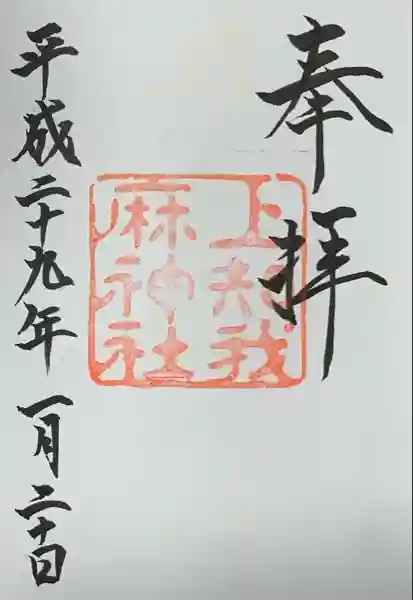 奉拝
上知我
麻神社
平成二十九年一月二十日